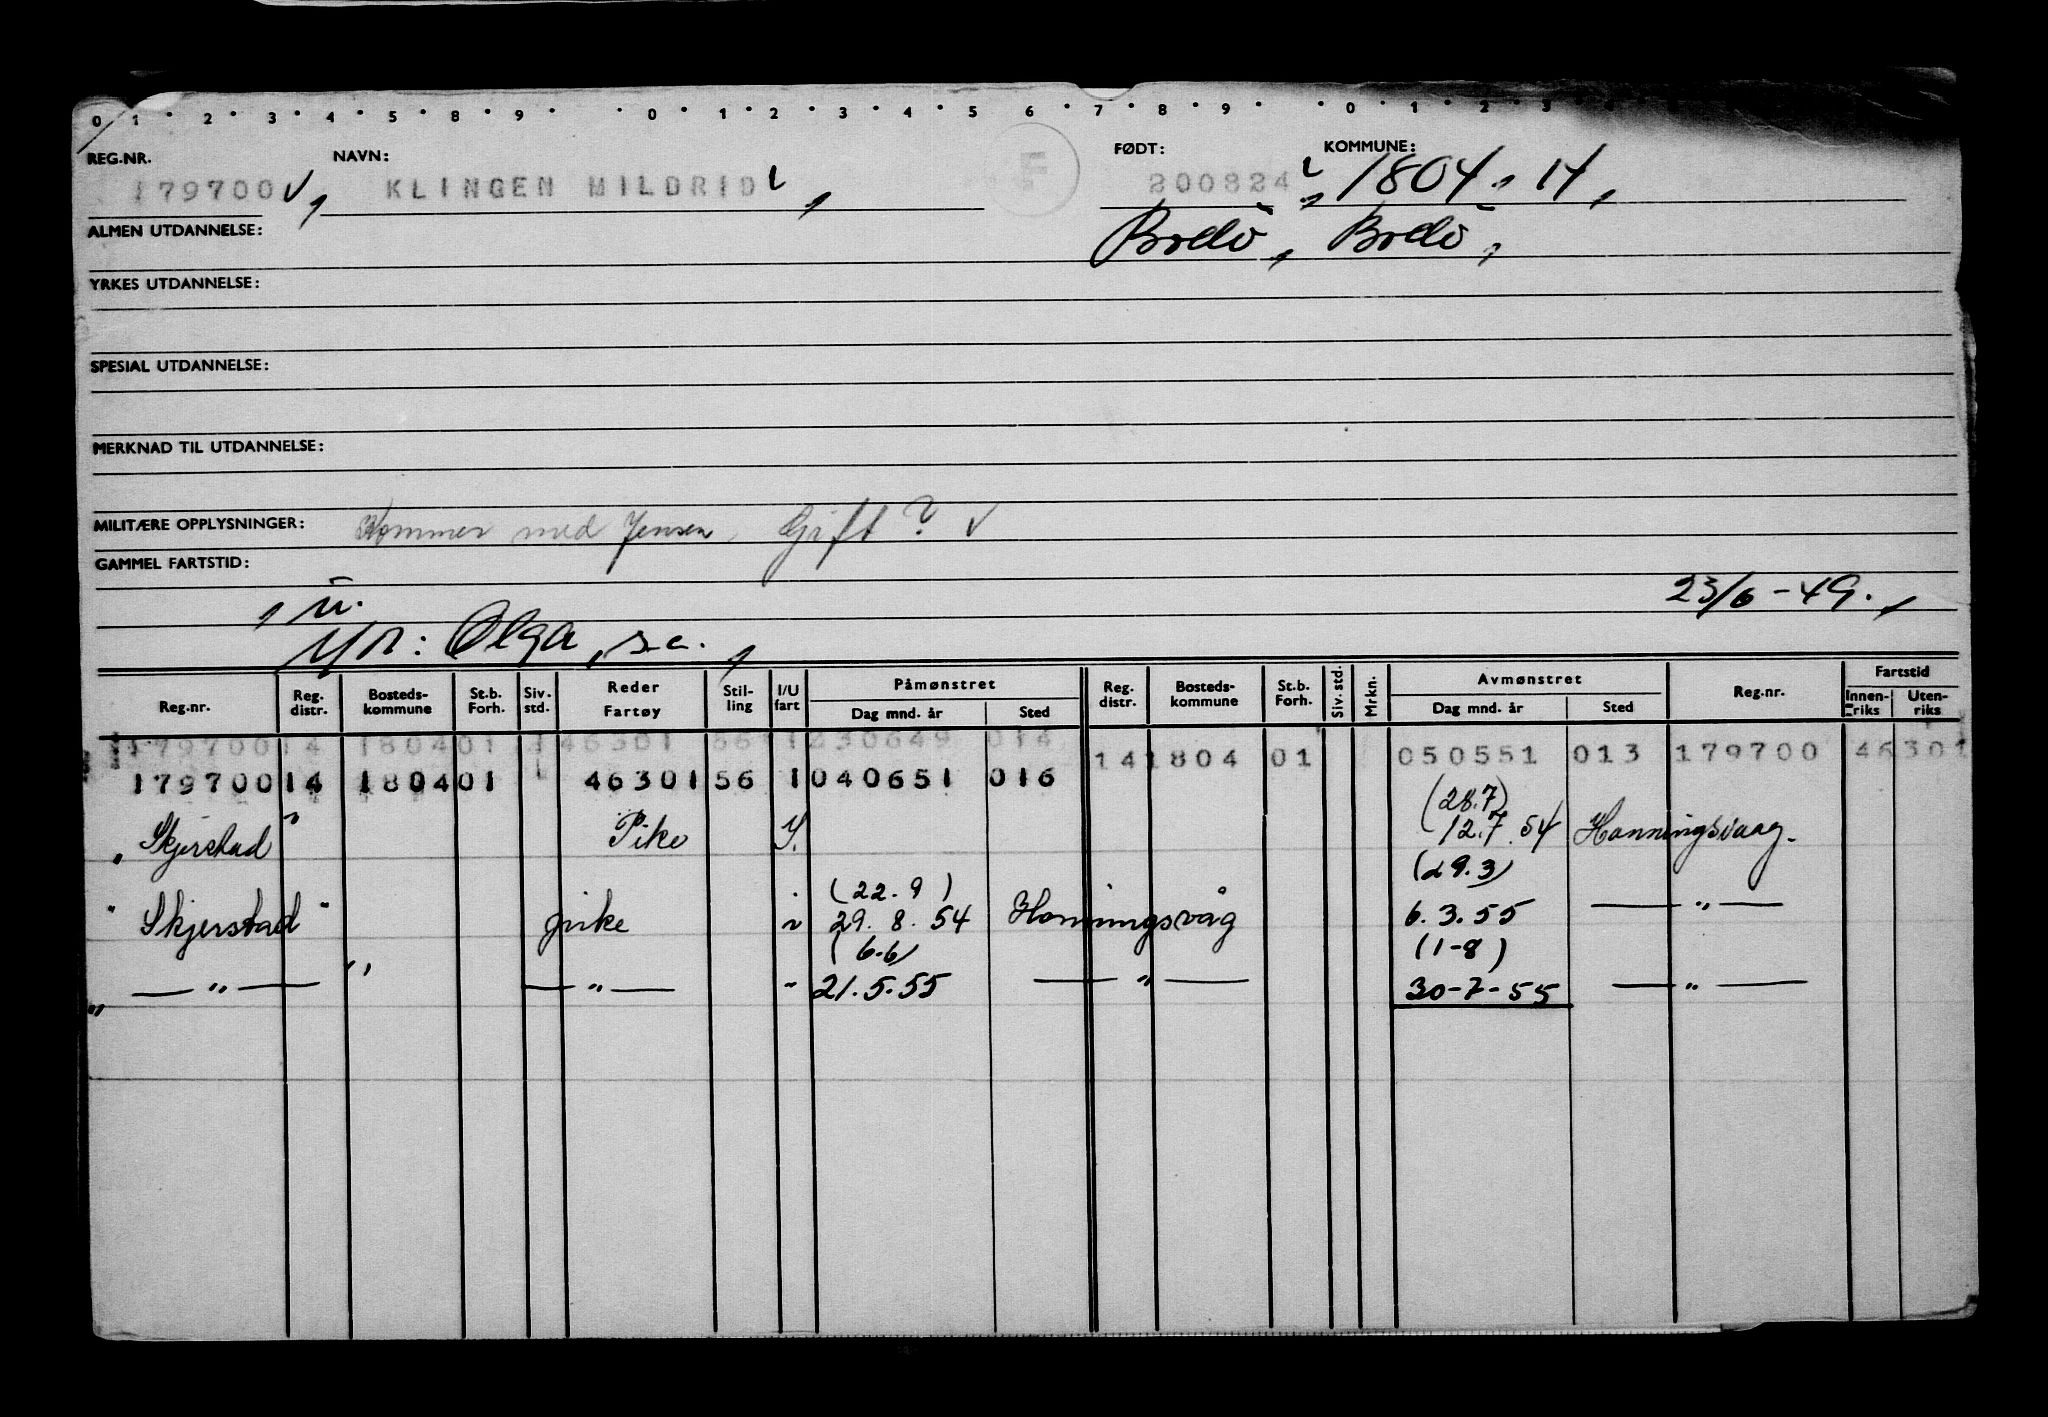 0 1 2 3 4 5 8 9 0 1 2 3 4 5 6 7 8 9 0 1 2 3
REG.NR. NAVN: F FØDT: KOMMUNE:
179700 KLINGEN MILDRID 200824 1804, 14,
ALMEN UTDANNELSE: Bodö, Bodö,
YRKES UTDANNELSE:
SPESIAL UTDANNELSE:
MERKNAD TIL UTDANNELSE:
MILITÆRE OPPLYSNINGER: Kommer med Jensen, Gift?
GAMMEL FARTSTID:
ü. 23/6-49.
Olga, s.a.,
Reg.nr. Reg. distr. Bosteds-kommune St.b. Forh. Siv. std. Reder Fartøy Stil-ling I/U fart Påmønstret Dag mnd. år Sted Reg. distr. Bosteds-kommune St.b. Forh. Siv. std. Mrkn. Avmønstret Dag mnd. år Sted Reg.nr. Fartstid Innen-riks Uten-riks
179700 14 1804 01 1 46301 56 1 230649 014 14 1804 01 050551 013 179700 46301
179700 14 1804 01 46301 56 1 040651 016
(28.7)
Skjerstad " Pike 12.7.54 Honningsvaag.
(22.9) (29.3)
" Skjerstad " pike 29.8.54 Honningsvåg 6.3.55 — " —
(6.6) (1-8)
" — " — — " — " 21.5.55 — " — 30-7-55 — " —